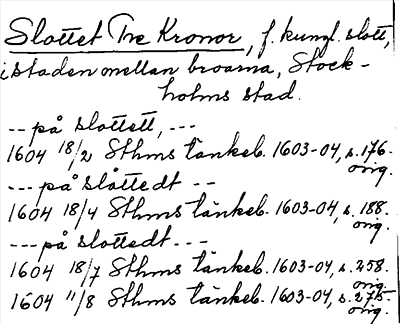 Slottet Tre Kronor, f. kungl. slott,
i staden mellan broarna, Stock-
holms stad.
--- på slottett, ---
1604 18/2 Sthms tänkeb. 1603-04, s. 176.
orig.
--- på slåttedt --
1604 18/4 Sthms tänkeb. 1603-04, s. 188.
orig.
--- på slottedt ---
1604 18/7 Sthms tänkeb. 1603-04, s. 258.
orig.
1604 11/8 Sthms tänkeb. 1603-04, s. 275.
orig.